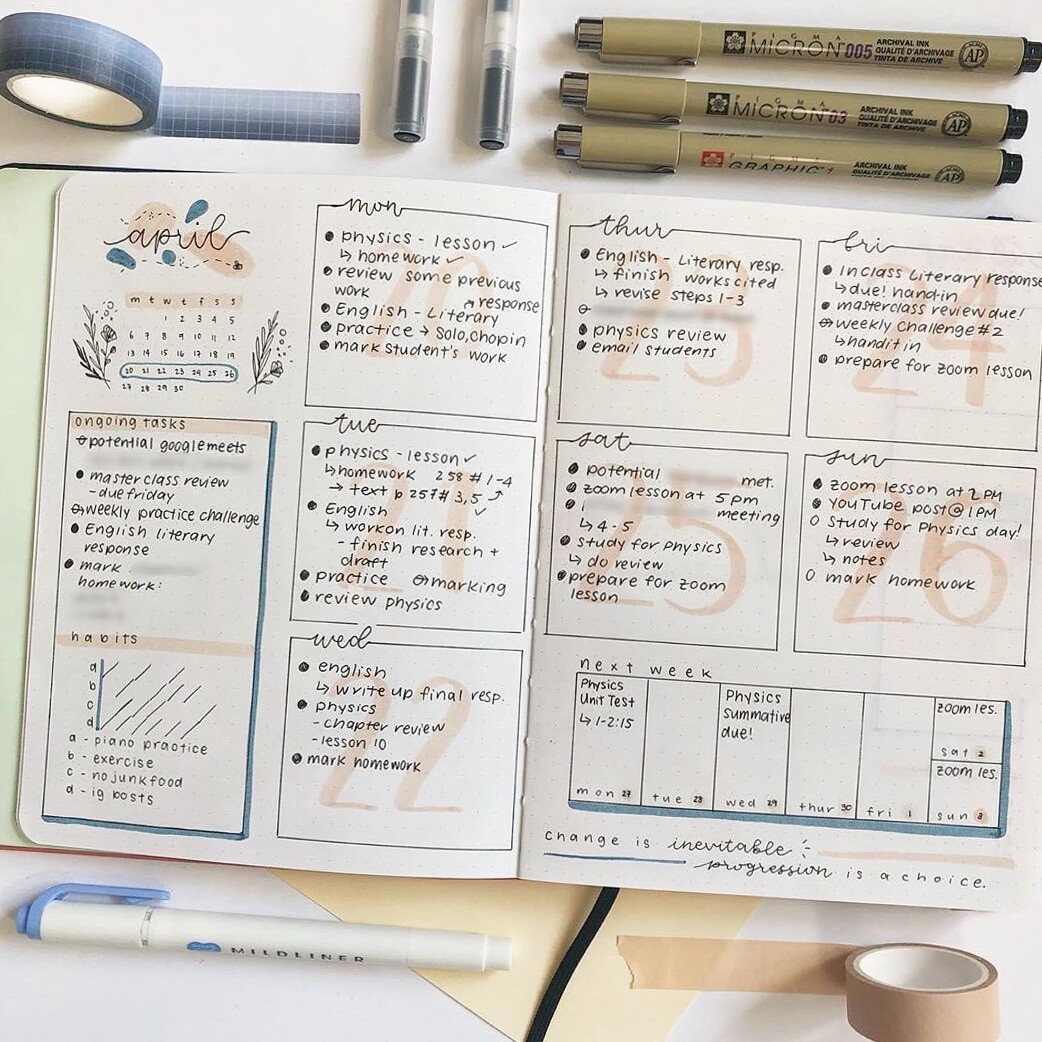 PIGMA
MICRON 005
ARCHIVAL INK
QUALITÉ D'ARCHIVAGE
TINTA DE ARCHIVE
AP
PIGMA
MICRON 03
ARCHIVAL INK
QUALITÉ D'ARCHIVAGE
TINTA DE ARCHIVE
AP
PIGMA
GRAPHIC 1
ARCHIVAL INK
QUALITÉ D'ARCHIVAGE
AP
april
m t w t f s s
1 2 3 4 5
6 7 8 9 10 11 12
13 14 15 16 17 18 19
20 21 22 23 24 25 26
27 28 29 30
ongoing tasks
potential google meets
master class review
- due friday
weekly practice challenge
English literary
response
mark
homework:
habits
a
b
c
d
a - piano practice
b - exercise
c - no junk food
d - ig posts
mon
20
physics - lesson ✓
↳ homework ✓
review some previous
work
English - Literary ↗ response
practice → Solo, chopin
mark student's work
tue
21
physics - lesson ✓
↳ homework 258 # 1-4
→ text p 257 # 3,5
English ✓
↳ work on lit. resp.
- finish research +
draft
practice marking
review physics
wed
22
english
↳ write up final resp.
physics
- chapter review
- lesson 10
mark homework
thur
23
English - Literary resp.
↳ finish works cited
↳ revise steps 1-3
physics review
email students
fri
24
Inclass Literary response
↳ due! hand in
masterclass review due!
weekly challenge #2
↳ hand it in
prepare for zoom lesson
sat
25
potential met.
zoom lesson at 5 pm
meeting
↳ 4 - 5
study for physics
↳ do review
prepare for zoom
lesson
sun
26
zoom lesson at 2 PM
YouTube post @ 1 PM
study for Physics day!
↳ review
↳ notes
mark homework
next week
Physics
Unit Test
↳ 1-2:15
mon 27
tue 28
Physics
Summative
due!
wed 29
thur 30
fri 1
zoom les.
sat 2
zoom les.
sun 3
change is inevitable
progression is a choice.
MILDLINER